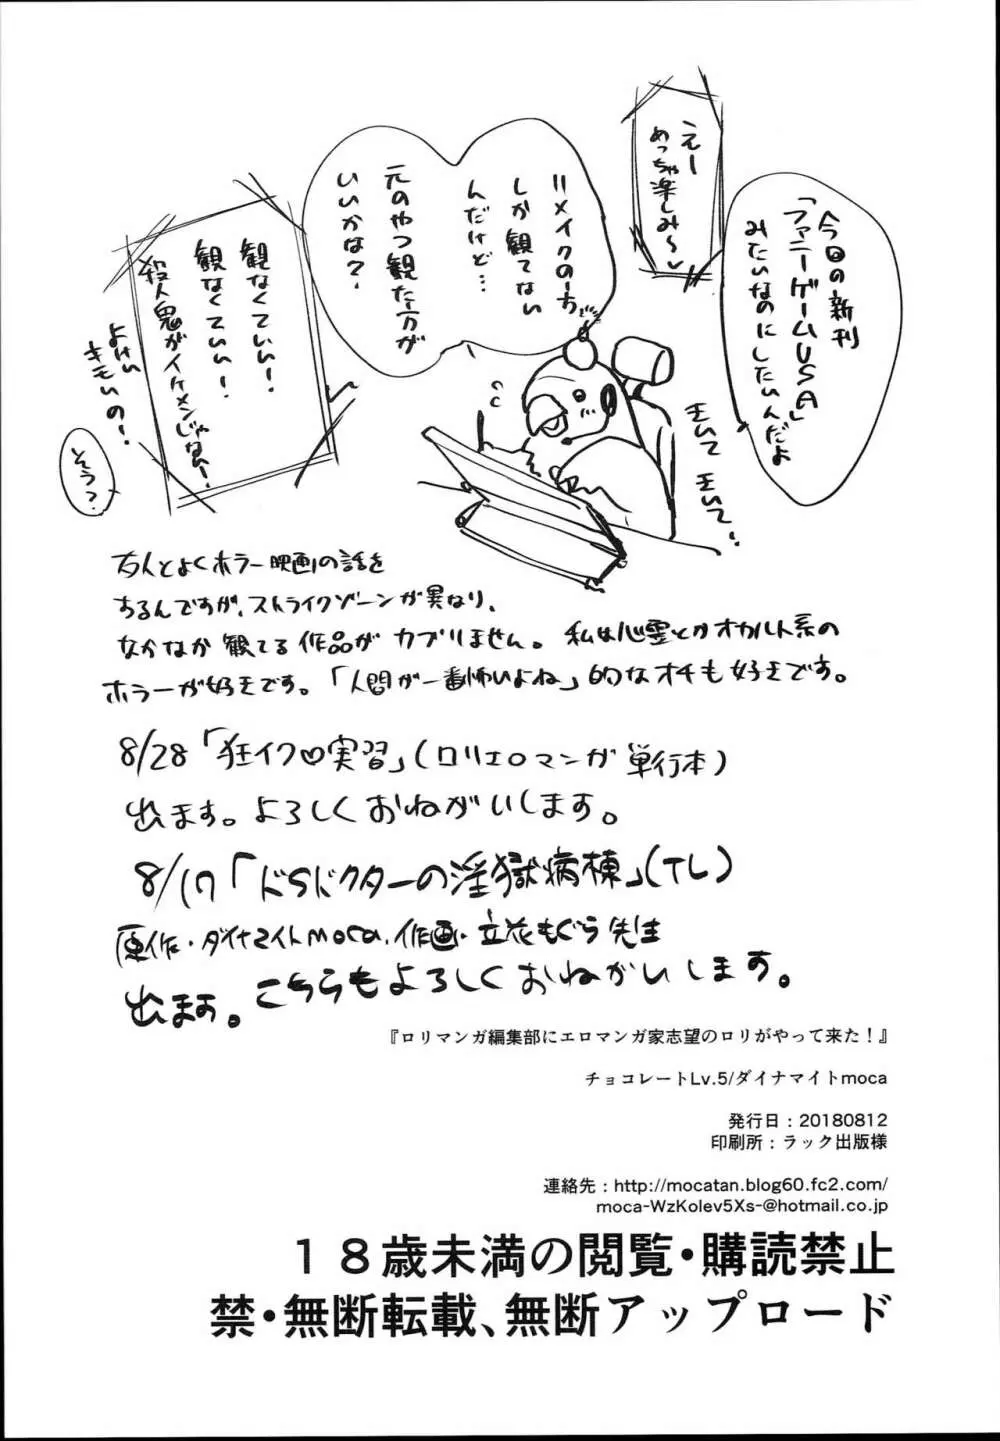 今日の新刊
「ファニーゲームUSA」
みたいなのにしたいんだよ
えー
めっちゃ楽しみ〜
リメイクの方
しか観てない
んだけど…
元のやつ観た方が
いいかな?
観なくていい!
観なくていい!
殺人鬼がイケメンじゃない!
よけい
キモいの!
そう?
友人とよくホラー映画の話を
するんですが、ストライクゾーンが異なり、
なかなか観てる作品がカブりません。私は心霊とかオカルト系の
ホラーが好きです。「人間が一番怖いよね」的なオチも好きです。
8/28「狂イク♡実習」(ロリエロマンガ単行本)
出ます。よろしくおねがいします。
8/17「ドSドクターの淫獄病棟」(TL)
原作・ダイナマイトmoca、作画・立花もぐら先生
出ます。こちらもよろしくおねがいします。
『ロリマンガ編集部にエロマンガ家志望のロリがやって来た!』
チョコレートLv.5/ダイナマイトmoca
発行日:20180812
印刷所:ラック出版様
連絡先:http://mocatan.blog60.fc2.com/
moca-WzKolev5Xs-@hotmail.co.jp
18歳未満の閲覧・購読禁止
禁・無断転載、無断アップロード